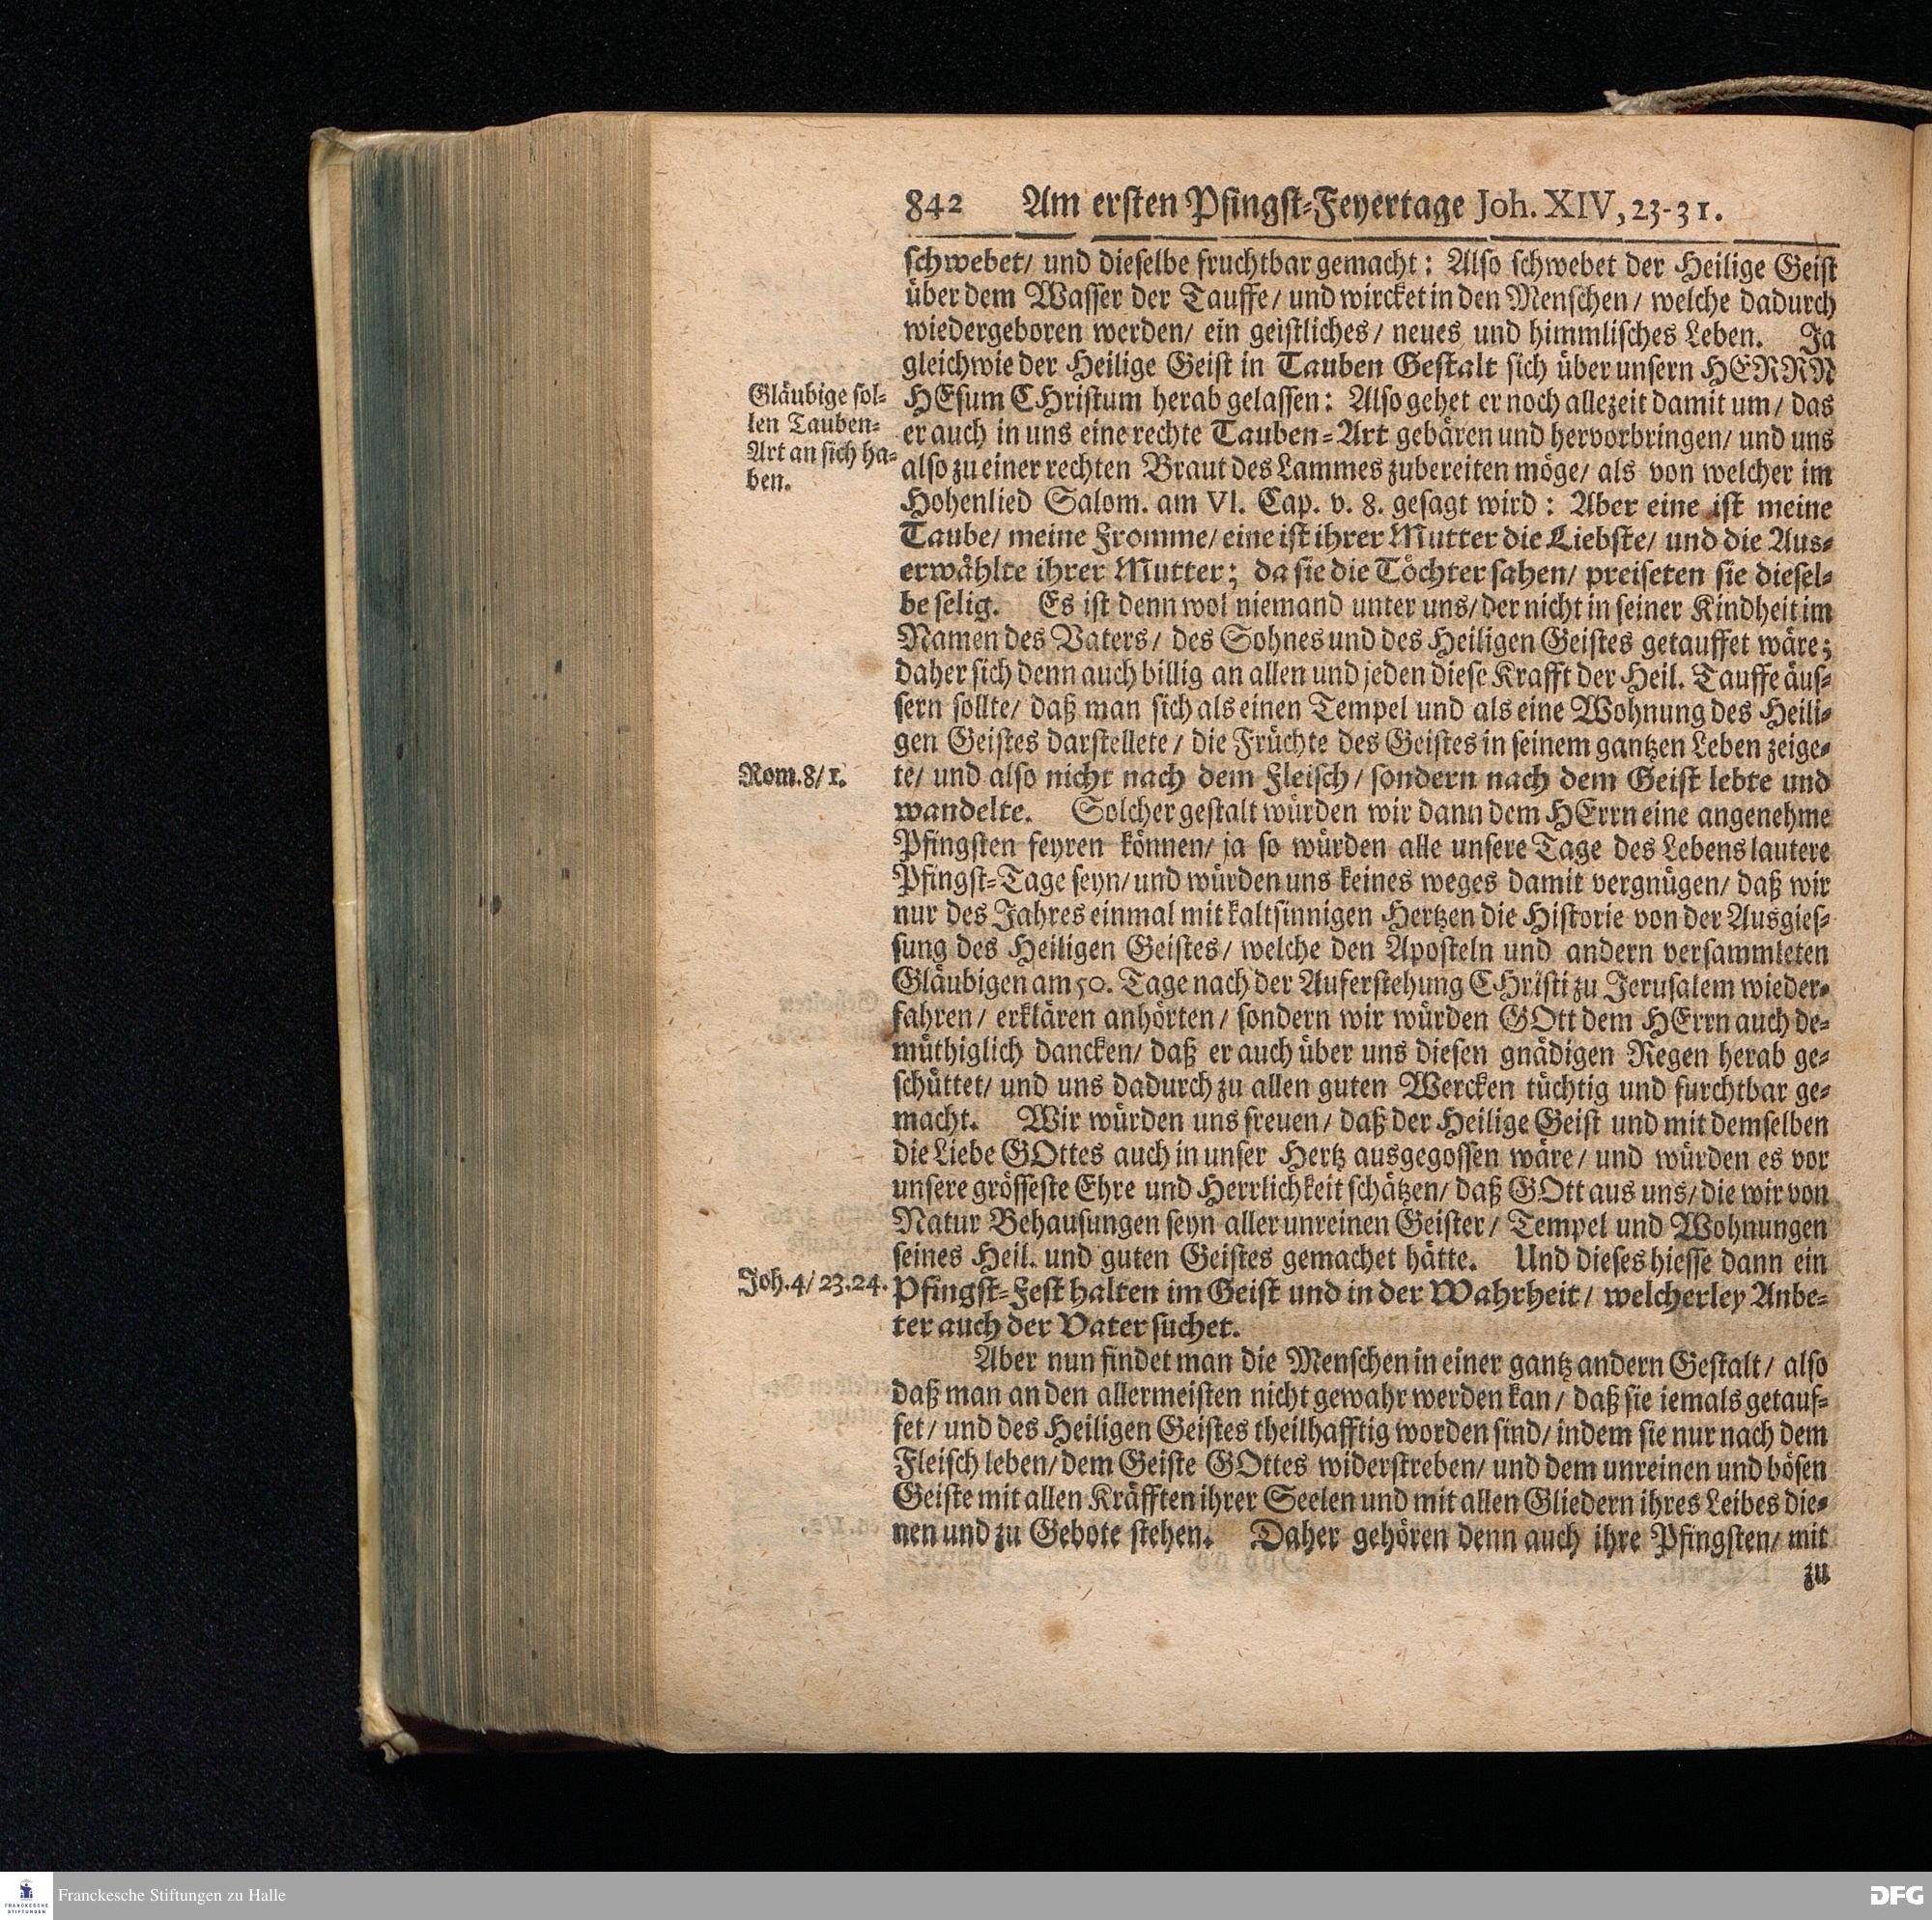 842 Am ersten Pfingst-Feyertage Joh. XIV, 23-31.
schwebet/ und dieselbe fruchtbar gemacht: Also schwebet der Heilige Geist
über dem Wasser der Tauffe/ und wircket in den Menschen/ welche dadurch
wiedergeboren werden/ ein geistliches/ neues und himmlisches Leben. Ja
gleichwie der Heilige Geist in Tauben Gestalt sich über unsern HERRN
HEsum CHristum herab gelassen: Also gehet er noch allezeit damit um/ das
er auch in uns eine rechte Tauben-Art gebären und hervorbringen/ und uns
also zu einer rechten Braut des Lammes zubereiten möge/ als von welcher im
Hohenlied Salom. am VI. Cap. v. 8. gesagt wird: Aber eine ist meine
Taube/ meine Fromme/ eine ist ihrer Mutter die Liebste/ und die Aus-
erwählte ihrer Mutter; da sie die Töchter sahen/ preiseten sie diesel-
be selig. Es ist denn wol niemand unter uns/ der nicht in seiner Kindheit im
Namen des Vaters/ des Sohnes und des Heiligen Geistes getauffet wäre;
daher sich denn auch billig an allen und jeden diese Krafft der Heil. Tauffe äus-
sern sollte/ daß man sich als einen Tempel und als eine Wohnung des Heili-
gen Geistes darstellete/ die Früchte des Geistes in seinem gantzen Leben zeige-
te/ und also nicht nach dem Fleisch/ sondern nach dem Geist lebte und
wandelte. Solcher gestalt würden wir dann dem HErrn eine angenehme
Pfingsten feyren können/ ja so würden alle unsere Tage des Lebens lautere
Pfingst-Tage seyn/ und würden uns keines weges damit vergnügen/ daß wir
nur des Jahres einmal mit kaltsinnigen Hertzen die Historie von der Ausgies-
sung des Heiligen Geistes/ welche den Aposteln und andern versammleten
Gläubigen am 50. Tage nach der Auferstehung CHristi zu Jerusalem wieder-
fahren/ erklären anhörten/ sondern wir würden GOtt dem HErrn auch de-
müthiglich dancken/ daß er auch über uns diesen gnädigen Regen herab ge-
schüttet/ und uns dadurch zu allen guten Wercken tüchtig und furchtbar ge-
macht. Wir würden uns freuen/ daß der Heilige Geist und mit demselben
die Liebe GOttes auch in unser Hertz ausgegossen wäre/ und würden es vor
unsere grösseste Ehre und Herrlichkeit schätzen/ daß GOtt aus uns/ die wir von
Natur Behausungen seyn aller unreinen Geister/ Tempel und Wohnungen
seines Heil. und guten Geistes gemachet hätte. Und dieses hiesse dann ein
Pfingst-Fest halten im Geist und in der Wahrheit/ welcherley Anbe-
ter auch der Vater suchet.
Aber nun findet man die Menschen in einer gantz andern Gestalt/ also
daß man an den allermeisten nicht gewahr werden kan/ daß sie iemals getauf-
fet/ und des Heiligen Geistes theilhafftig worden sind/ indem sie nur nach dem
Fleisch leben/ dem Geiste GOttes widerstreben/ und dem unreinen und bösen
Geiste mit allen Kräfften ihrer Seelen und mit allen Gliedern ihres Leibes die-
nen und zu Gebote stehen. Daher gehören denn auch ihre Pfingsten/ mit
zu
Gläubige sol-
len Tauben-
Art an sich ha-
ben.
Rom. 8/ 1.
Joh. 4/ 23. 24.
FRANCKESCHE
STIFTUNGEN
Franckesche Stiftungen zu Halle
DFG